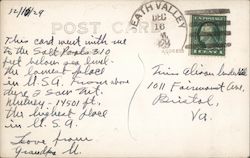 12/16/29
POST CARD
DEATH VALLEY
DEC
16
ADDRESS
This card went with me
to the Salt Pools 310
feet below sea level.
The lowest place
in U.S.A.
I saw Mt.
Whitney - 14501 ft.
The highest place
in U.S.A.
Love from
Grandpa U.
Miss Alison
1011 Fairmount Ave,
Bristol,
Va.